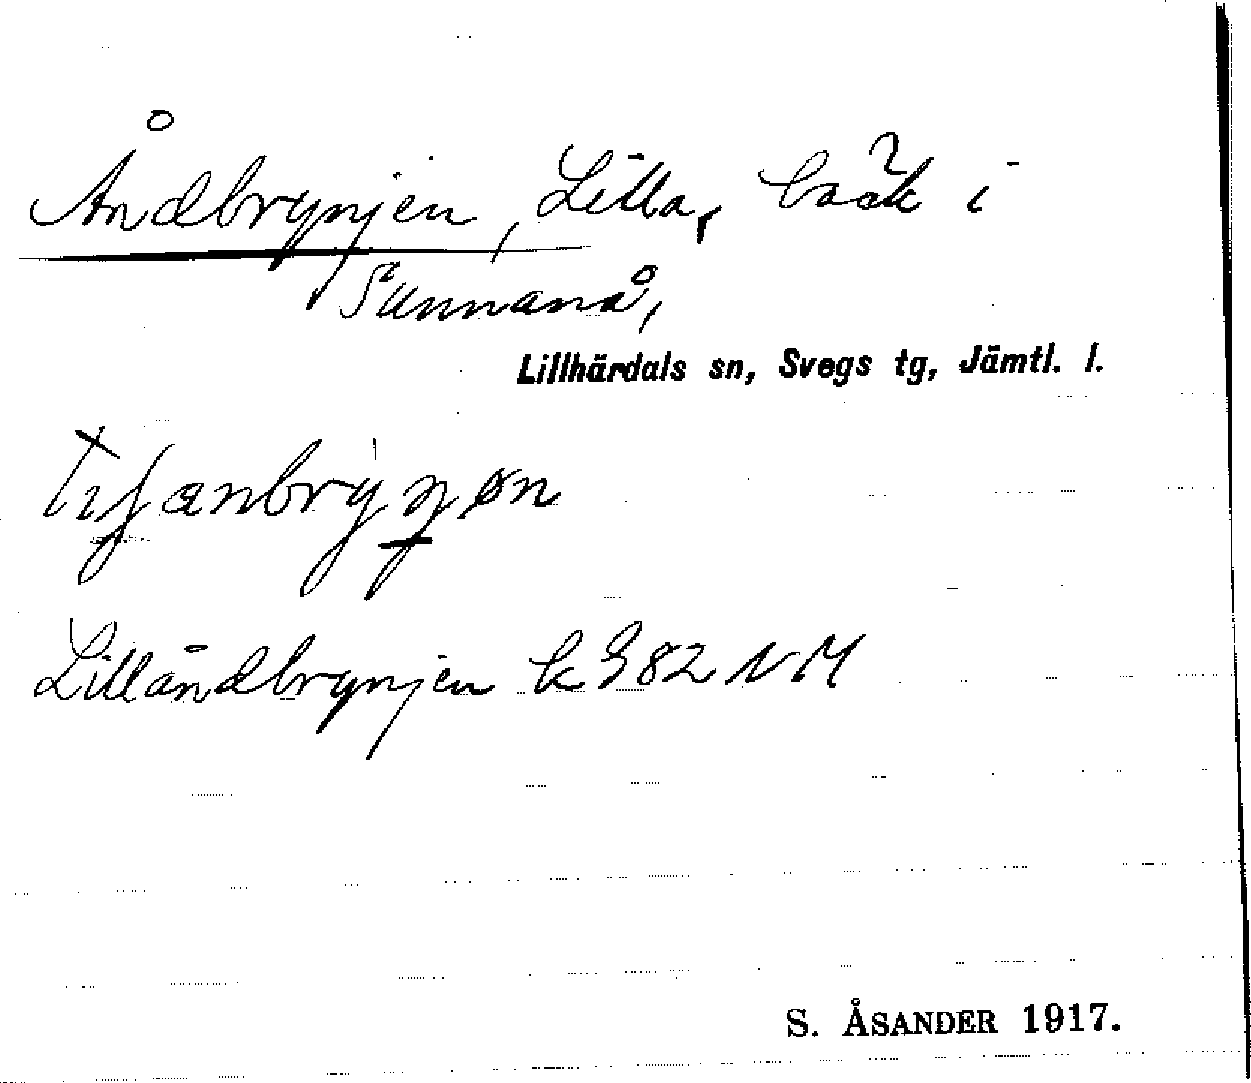 Åndbrynjen, Lilla, bäck i
Sunnanå,
Lillhärdals sn, Svegs tg, Jämtl. l.
Lillåndbrynjen k 382 NM
S. ÅSANDER 1917.